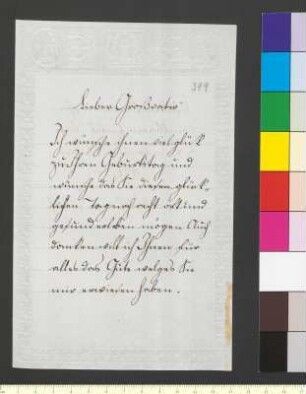 389
Lieber Großvater
Ich wünsche ihnen viel glück
zu Ihren Geburtstag und
wünsche das Sie diesen glück-
lichen Tag noch recht oft und
gesund erleben mögen Auch
danken will ich Ihnen für
alles das Gute welges Sie
mir erwiesen haben.